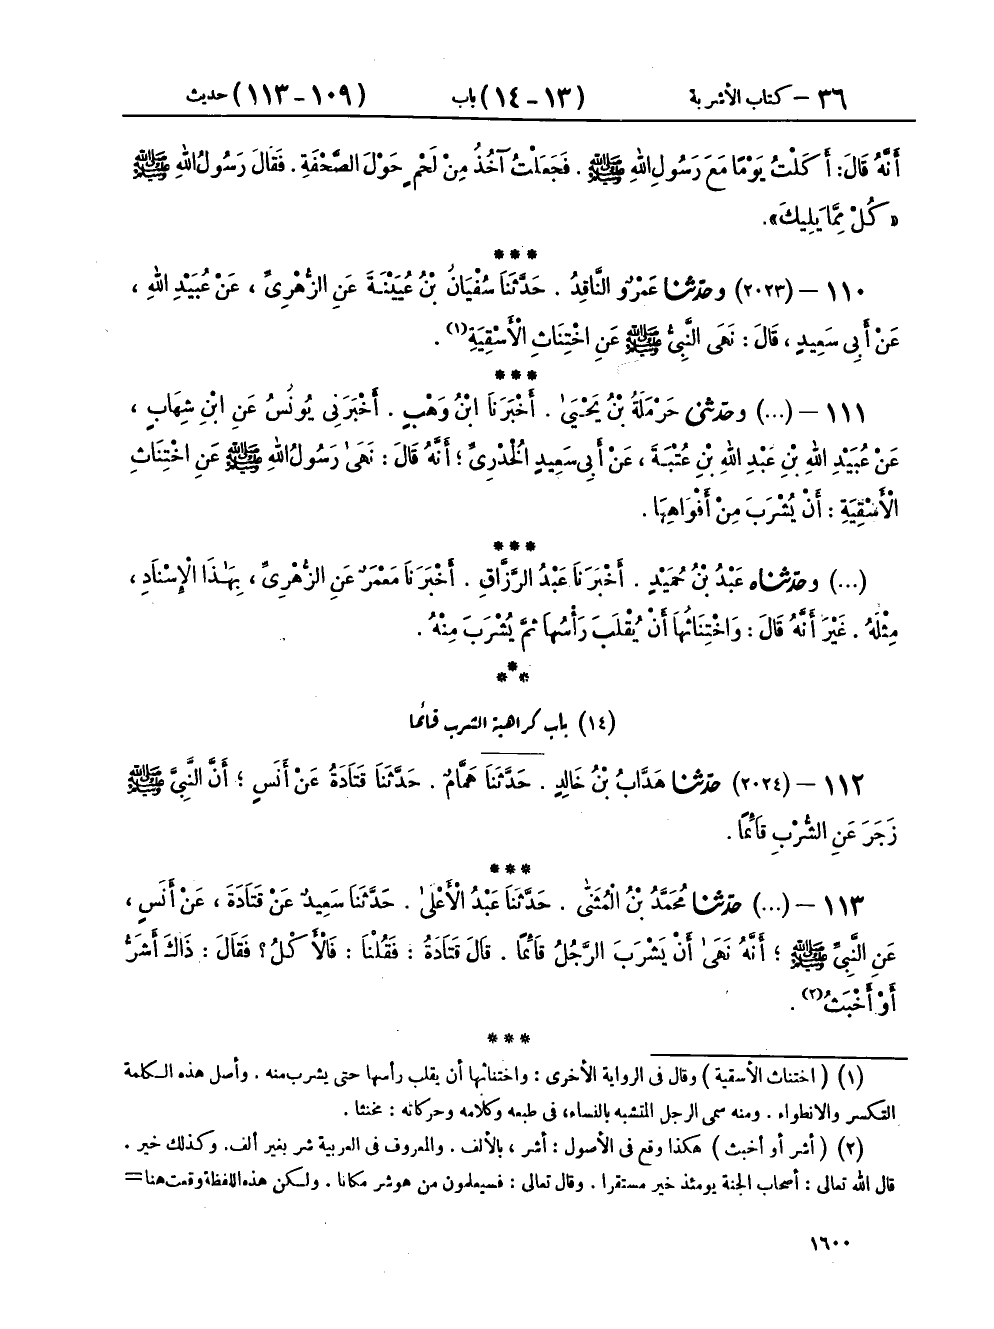 ٣٦ – كتاب الأشربة (١٣-١٤) باب (١٠٩-١١٣) حديث
أَنَّهُ قَالَ: أَكَلْتُ يَوْمًا مَعَ رَسُولِ اللهِ ﷺ . فَجَعَلْتُ آخُذُ مِنْ لَحْمٍ حَوْلَ الصَّحْفَةِ . فَقَالَ رَسُولُ اللهِ ﷺ
« كُلْ مِمَّا يَلِيكَ».
***
١١٠ – (٢٠٢٣) وحدّثنا عَمْرٌو النَّاقِدُ . حَدَّثَنَا سُفْيَانُ بْنُ عُيَيْنَةَ عَنِ الزُّهْرِيِّ ، عَنْ عُبَيْدِ اللهِ ،
عَنْ أَبِي سَعِيدٍ ، قَالَ : نَهَى النَّبِيُّ ﷺ عَنِ اخْتِنَاثِ الْأَسْقِيَةِ(١) .
***
١١١ – (...) وحدّثني حَرْمَلَةُ بْنُ يَحْيَىٰ . أَخْبَرَنَا ابْنُ وَهْبٍ . أَخْبَرَنِي يُونُسُ عَنِ ابْنِ شِهَابٍ ،
عَنْ عُبَيْدِ اللهِ بْنِ عَبْدِ اللهِ بْنِ عُتْبَةَ ، عَنْ أَبِي سَعِيدٍ الْخُدْرِيِّ ؛ أَنَّهُ قَالَ : نَهَىٰ رَسُولُ اللهِ ﷺ عَنِ اخْتِنَاثِ
الْأَسْقِيَةِ : أَنْ يُشْرَبَ مِنْ أَفْوَاهِهَا .
***
(...) وحدّثناه عَبْدُ بْنُ حُمَيْدٍ . أَخْبَرَنَا عَبْدُ الرَّزَّاقِ . أَخْبَرَنَا مَعْمَرٌ عَنِ الزُّهْرِيِّ ، بِهَٰذَا الْإِسْنَادِ ،
مِثْلَهُ . غَيْرَ أَنَّهُ قَالَ : وَاخْتِنَاثُهَا أَنْ يُقْلَبَ رَأْسُهَا ثُمَّ يُشْرَبَ مِنْهُ .
***
(١٤) باب كراهية الشرب قائما
١١٢ – (٢٠٢٤) حدّثنا هَدَّابُ بْنُ خَالِدٍ . حَدَّثَنَا هَمَّامٌ . حَدَّثَنَا قَتَادَةُ عَنْ أَنَسٍ ؛ أَنَّ النَّبِيَّ ﷺ
زَجَرَ عَنِ الشُّرْبِ قَائِمًا .
***
١١٣ – (...) حدّثنا مُحَمَّدُ بْنُ الْمُثَنَّىٰ . حَدَّثَنَا عَبْدُ الْأَعْلَىٰ . حَدَّثَنَا سَعِيدٌ عَنْ قَتَادَةَ ، عَنْ أَنَسٍ ،
عَنِ النَّبِيِّ ﷺ ؛ أَنَّهُ نَهَىٰ أَنْ يَشْرَبَ الرَّجُلُ قَائِمًا . قَالَ قَتَادَةُ : فَقُلْنَا : فَالْأَكْلُ ؟ فَقَالَ : ذَاكَ أَشَرُّ
أَوْ أَخْبَثُ(٢) .
***
(١) ( اختناث الأسقية ) وقال فى الرواية الأخرى : واختناثها أن يقلب رأسها حتى يشرب منه . وأصل هذه الكلمة
التكسر والانطواء . ومنه سمى الرجل المتشبه بالنساء، فى طبعه وكلامه وحركاته : مخنثا .
(٢) ( أشر أو أخبث ) هكذا وقع فى الأصول : أشر ، بالألف . والمعروف فى العربية شر بغير ألف. وكذلك خير .
قال الله تعالى : أصحاب الجنة يومئذ خير مستقرا . وقال تعالى : فسيعلمون من هو شر مكانا . ولكن هذه اللفظة وقعت هنا=
١٦٠٠